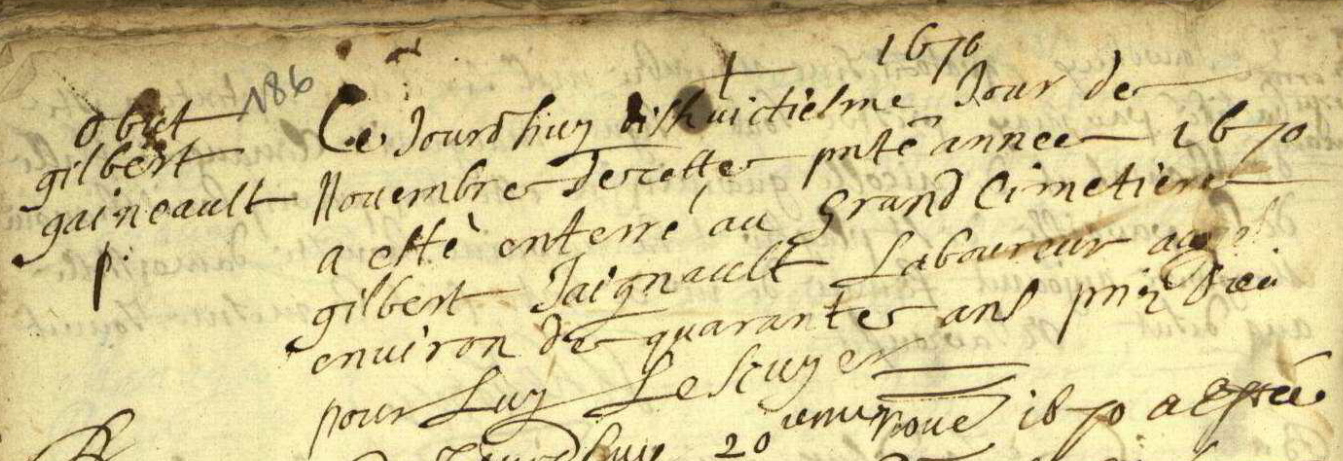 1670
186
Obiit
gilbert
gaineault
p.
Ce Jourdhuy dishuictiesme Jour de
Novembre de cette pnte annee 1670
a esté enterré au grand Cimetiere
gilbert Jaignault Laboureur aagé
environ de quarante ans priez Dieu
pour Luy Lescuyer
Jourdhuy 20 nove 1670 a Esté